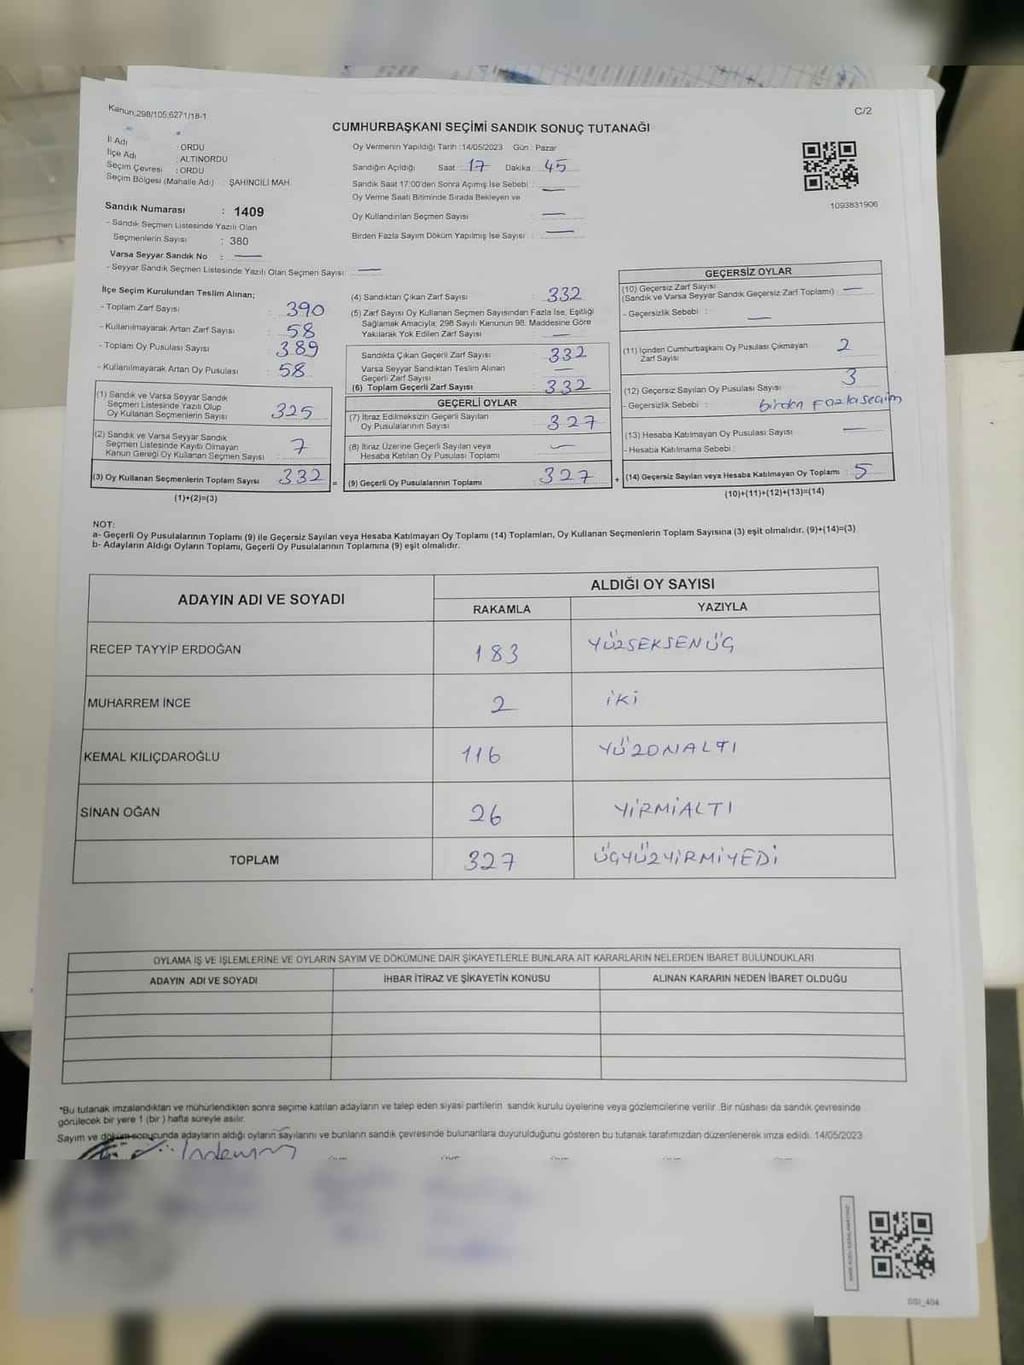 Kanun,298/105,6271/18-1
C/2
CUMHURBAŞKANI SEÇİMİ SANDIK SONUÇ TUTANAĞI
İl Adı : ORDU
İlçe Adı : ALTINORDU
Seçim Çevresi : ORDU
Seçim Bölgesi (Mahalle Adı) : ŞAHİNCİLİ MAH.
Sandık Numarası : 1409
- Sandık Seçmen Listesinde Yazılı Olan
Seçmenlerin Sayısı : 380
Varsa Seyyar Sandık No : —
- Seyyar Sandık Seçmen Listesinde Yazılı Olan Seçmen Sayısı: —
Oy Vermenin Yapıldığı Tarih :14/05/2023 Gün : Pazar
Sandığın Açıldığı Saat : 17 Dakika : 45
Sandık Saat 17:00'den Sonra Açımış İse Sebebi : —
Oy Verme Saati Bitiminde Sırada Bekleyen ve
Oy Kullandırılan Seçmen Sayısı : —
Birden Fazla Sayım Döküm Yapılmış İse Sayısı : —
1093831906
İlçe Seçim Kurulundan Teslim Alınan;
- Toplam Zarf Sayısı : 390
- Kullanılmayarak Artan Zarf Sayısı : 58
- Toplam Oy Pusulası Sayısı : 389
- Kullanılmayarak Artan Oy Pusulası : 58
(1) Sandık ve Varsa Seyyar Sandık
Seçmen Listesinde Yazılı Olup
Oy Kullanan Seçmenlerin Sayısı : 325
(2) Sandık ve Varsa Seyyar Sandık
Seçmen Listesinde Kayıtlı Olmayan
Kanun Gereği Oy Kullanan Seçmen Sayısı : 7
(3) Oy Kullanan Seçmenlerin Toplam Sayısı : 332
(1)+(2)=(3)
(4) Sandıktan Çıkan Zarf Sayısı : 332
(5) Zarf Sayısı Oy Kullanan Seçmen Sayısından Fazla İse, Eşitliği
Sağlamak Amacıyla; 298 Sayılı Kanunun 98. Maddesine Göre
Yakılarak Yok Edilen Zarf Sayısı : —
Sandıkta Çıkan Geçerli Zarf Sayısı : 332
Varsa Seyyar Sandıktan Teslim Alınan
Geçerli Zarf Sayısı : —
(6) Toplam Geçerli Zarf Sayısı : 332
GEÇERLİ OYLAR
(7) İtiraz Edilmeksizin Geçerli Sayılan
Oy Pusulalarının Sayısı : 327
(8) İtiraz Üzerine Geçerli Sayılan veya
Hesaba Katılan Oy Pusulası Toplamı : —
= (9) Geçerli Oy Pusulalarının Toplamı : 327
GEÇERSİZ OYLAR
(10) Geçersiz Zarf Sayısı
(Sandık ve Varsa Seyyar Sandık Geçersiz Zarf Toplamı) : —
- Geçersizlik Sebebi : —
(11) İçinden Cumhurbaşkanı Oy Pusulası Çıkmayan
Zarf Sayısı : 2
(12) Geçersiz Sayılan Oy Pusulası Sayısı : 3
- Geçersizlik Sebebi : birden fazla seçim
(13) Hesaba Katılmayan Oy Pusulası Sayısı : —
- Hesaba Katılmama Sebebi :
+ (14) Geçersiz Sayılan veya Hesaba Katılmayan Oy Toplamı : 5
(10)+(11)+(12)+(13)=(14)
NOT:
a- Geçerli Oy Pusulalarının Toplamı (9) ile Geçersiz Sayılan veya Hesaba Katılmayan Oy Toplamı (14) Toplamları, Oy Kullanan Seçmenlerin Toplam Sayısına (3) eşit olmalıdır. (9)+(14)=(3)
b- Adayların Aldığı Oyların Toplamı, Geçerli Oy Pusulalarının Toplamına (9) eşit olmalıdır.
ADAYIN ADI VE SOYADI
ALDIĞI OY SAYISI
RAKAMLA YAZIYLA
RECEP TAYYİP ERDOĞAN 183 YÜZSEKSENÜÇ
MUHARREM İNCE 2 iKi
KEMAL KILIÇDAROĞLU 116 YÜZONALTI
SİNAN OĞAN 26 YİRMİALTI
TOPLAM 327 ÜÇYÜZYİRMİYEDİ
OYLAMA İŞ VE İŞLEMLERİNE VE OYLARIN SAYIM VE DÖKÜMÜNE DAİR ŞİKAYETLERLE BUNLARA AİT KARARLARIN NELERDEN İBARET BULUNDUKLARI
ADAYIN ADI VE SOYADI İHBAR İTİRAZ VE ŞİKAYETİN KONUSU ALINAN KARARIN NEDEN İBARET OLDUĞU
*Bu tutanak imzalandıktan ve mühürlendikten sonra seçime katılan adayların ve talep eden siyasi partilerin sandık kurulu üyelerine veya gözlemcilerine verilir. Bir nüshası da sandık çevresinde
görülecek bir yere 1 (bir) hafta süreyle asılır.
Sayım ve döküm sonucunda adayların aldığı oyların sayılarını ve bunların sandık çevresinde bulunanlara duyurulduğunu gösteren bu tutanak tarafımızdan düzenlenerek imza edildi. 14/05/2023